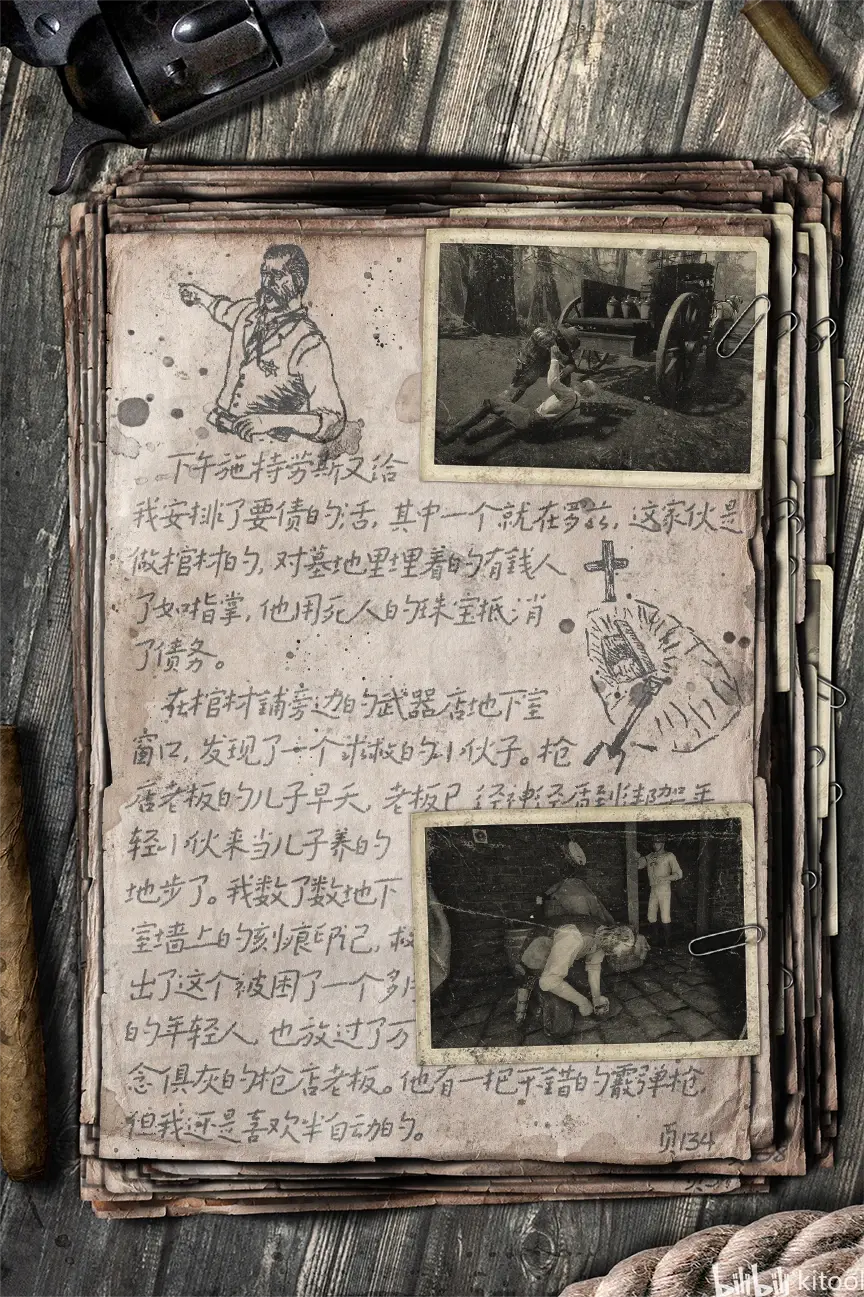 下午施特劳斯又给
我安排了要债的活，其中一个就在罗兹，这家伙是
做棺材的，对墓地里埋着的有錢人
了如指掌，他用死人的珠宝抵消
了债务。
在棺材铺旁边的武器店地下室
窗口，发现了一个求救的小伙子。枪
店老板的儿子早夭，老板已经神经质到绑架年
轻小伙来当儿子养的
地步了。我数了数地下
室墙上的刻痕印记，救
出了这个被困了一个多月
的年轻人，也放过了万
念俱灰的枪店老板。他有一把不错的霰弹枪，
但我还是喜欢半自动的。
页134
bilibili kitool